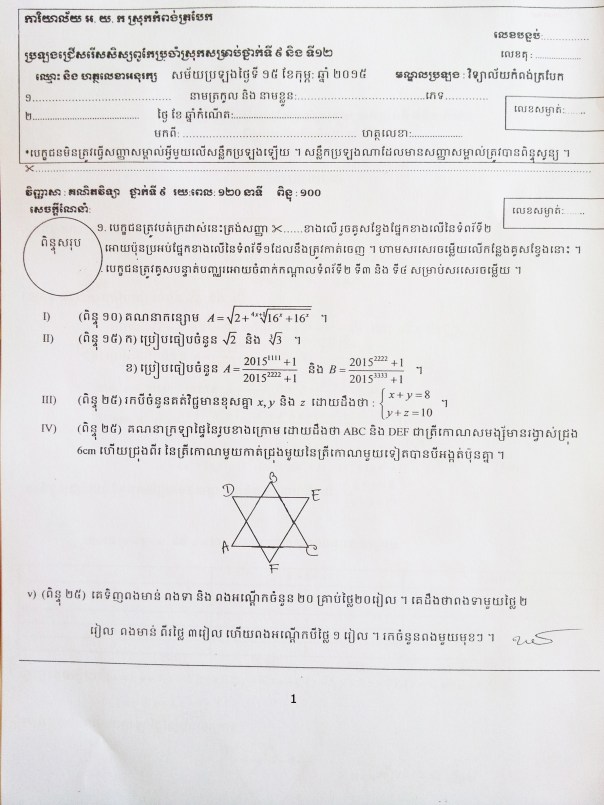 ការិយាល័យ អ. យ. ក ស្រុកកំពង់ត្របែក
លេខបន្ទប់:..............
ប្រឡងជ្រើសរើសសិស្សពូកែប្រចាំស្រុកសម្រាប់ថ្នាក់ទី ៩ និង ទី១២
លេខតុ : ..................
ឈ្មោះ និង ហត្ថលេខាអនុរក្ស សម័យប្រឡងថ្ងៃទី ១៥ ខែកុម្ភ: ឆ្នាំ ២០១៥ មណ្ឌលប្រឡង : វិទ្យាល័យកំពង់ត្របែក
១............................... នាមត្រកូល និង នាមខ្លួន:...............................ភេទ..............
លេខសម្ងាត់:.......
២............................... ថ្ងៃ ខែ ឆ្នាំកំណើត:...............................
មកពី: ............................... ហត្ថលេខា:...............
*បេក្ខជនមិនត្រូវធ្វើសញ្ញាសម្គាល់អ្វីមួយលើសន្លឹកប្រឡងឡើយ ។ សន្លឹកប្រឡងណាដែលមានសញ្ញាសម្គាល់ត្រូវបានពិន្ទុសូន្យ ។
វិញ្ញាសា : គណិតវិទ្យា ថ្នាក់ទី ៩ រយ:ពេល: ១២០ នាទី ពិន្ទុ : ១០០
សេចក្តីណែនាំ:
លេខសម្ងាត់:.......
ពិន្ទុសរុប
១. បេក្ខជនត្រូវបត់ក្រដាស់នេះត្រង់សញ្ញា ✂......ខាងលើ រួចគូសខ្វែងផ្នែកខាងលើនៃទំព័រទី២
អោយប៉ុនប្រអប់ផ្នែកខាងលើនៃទំព័រទី១ដែលនឹងត្រូវកាត់ចេញ ។ ហាមសរសេរចម្លើយលើកន្លែងគូសខ្វែងនោះ ។
. បេក្ខជនត្រូវគូសបន្ទាត់បញ្ឈរអោយចំពាក់កណ្តាលទំព័រទី២ ទី៣ និង ទី៤ សម្រាប់សរសេរចម្លើយ ។
I) (ពិន្ទុ ១០) គណនាកន្សោម ។
II) (ពិន្ទុ ១៥) ក) ប្រៀបធៀបចំនួន √2 និង ∛3 ។
ខ) ប្រៀបធៀបចំនួន A = (2015^1111 + 1)/(2015^2222 + 1) និង B = (2015^2222 + 1)/(2015^3333 + 1) ។
III) (ពិន្ទុ ២៥) រកបីចំនួនគត់វិជ្ជមានខុសគ្នា x, y និង z ដោយដឹងថា : { x + y = 8
y + z = 10 ។
IV) (ពិន្ទុ ២៥) គណនាក្រឡាផ្ទៃនៃរូបខាងក្រោម ដោយដឹងថា ABC និង DEF ជាត្រីកោណសមង្ស័មានរង្វាស់ជ្រុង
6cm ហើយជ្រុងពីរ នៃត្រីកោណមួយកាត់ជ្រុងមួយនៃត្រីកោណមួយទៀតបានបីអង្កត់ប៉ុនគ្នា ។
B
D E
A C
F
v) (ពិន្ទុ ២៥) គេទិញពងមាន់ ពងទា និង ពងអណ្តើកចំនួន ២០ គ្រាប់ថ្លៃ២០រៀល ។ គេដឹងថាពងទាមួយថ្លៃ ២
រៀល ពងមាន់ ពីរថ្លៃ ៣រៀល ហើយពងអណ្តើកបីថ្លៃ ១ រៀល ។ រកចំនួនពងមួយមុខៗ ។
1